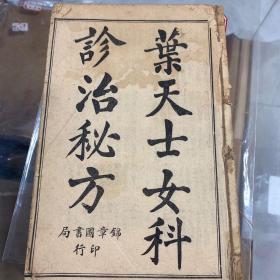 葉天士女科
診治秘方
錦章國書局
印行